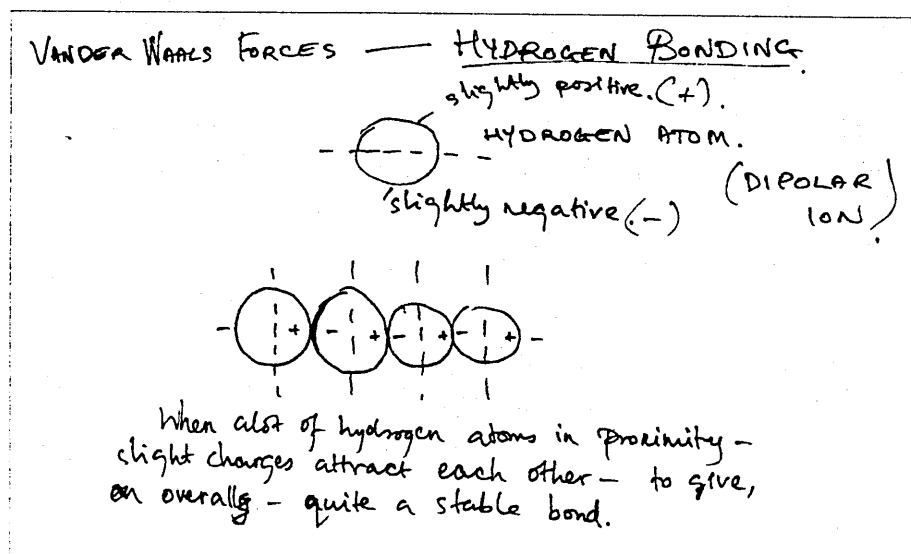 VANDER WAALS FORCES — HYDROGEN BONDING.
slightly positive. (+).
HYDROGEN ATOM.
slightly negative (-)
(DIPOLAR
ION)
- + - + - + - + -
When alot of hydrogen atoms in proximity -
slight charges attract each other - to give,
on overall - quite a stable bond.